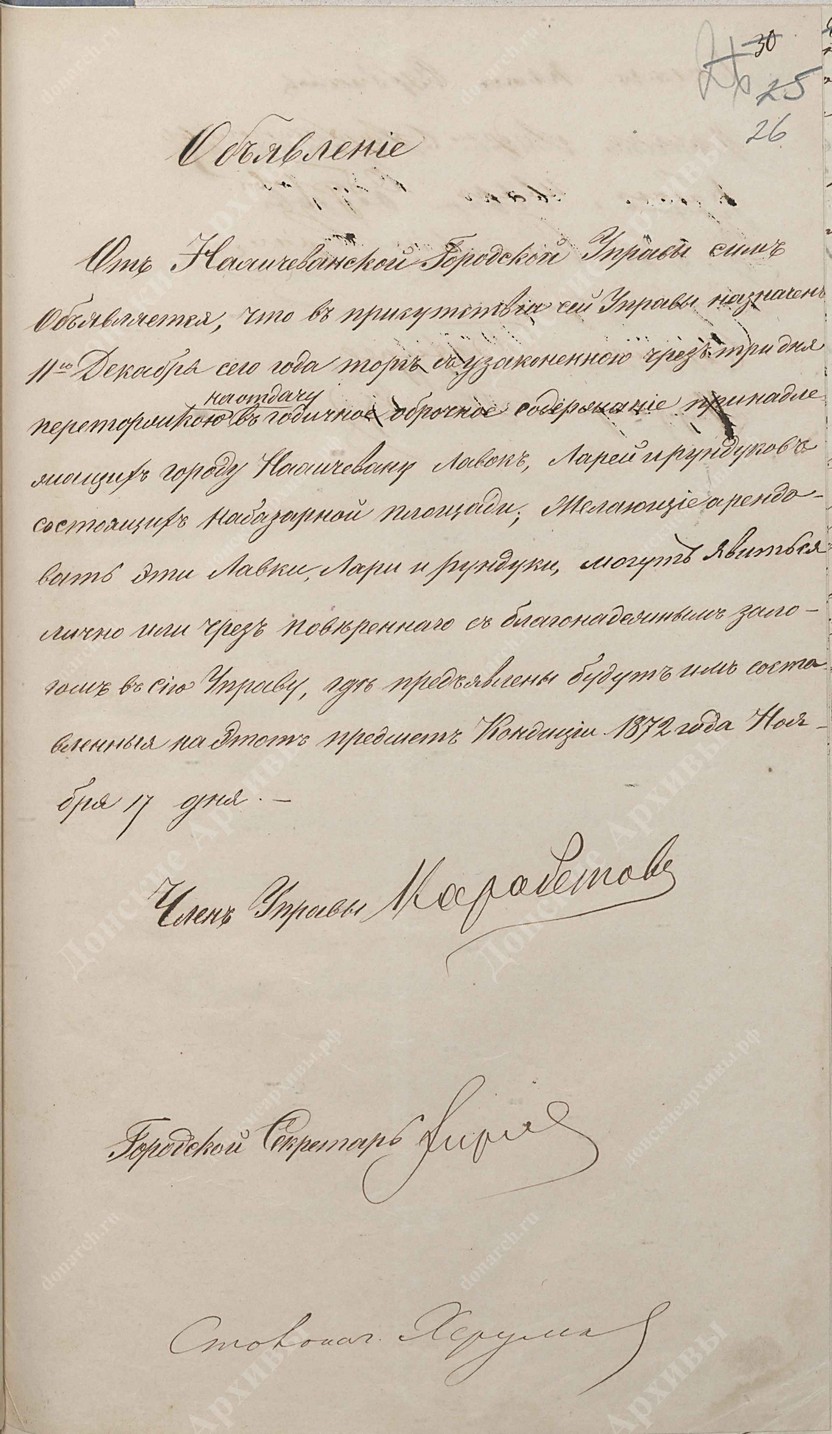 30
25
26
Объявленіе
Отъ Нахичеванской Городской Управы симъ
Объявляется, что въ присутствіи сей Управы назначенъ
11го Декабря сего года торгъ съ узаконенною чрезъ три дня
на отдачу
переторжкою въ годичное оброчное содержаніе принадле
жащихъ городу Нахичевану Лавокъ, Ларей и рундуковъ
состоящихъ на базарной площади; Желающіе арендо-
вать эти Лавки, Лари и рундуки, могутъ явиться
лично или чрезъ повѣреннаго съ благонадежнымъ зало-
гомъ въ сію Управу, гдѣ предъявлены будутъ имъ соста
вленныя на этотъ предметъ Кондиціи. 1872 года Ноя-
бря 17 дня. —
Членъ Управы Карабетовъ
Городской Секретарь
Столонач.
Донские Архивы
donarch.ru
донскиеархивы.рф